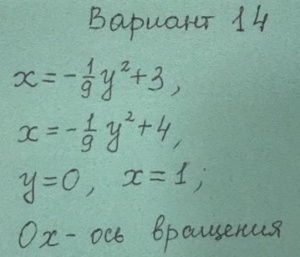 Вариант 14
x = -1/9 y² + 3,
x = -1/9 y² + 4,
y = 0, x = 1;
Ox - ось вращения